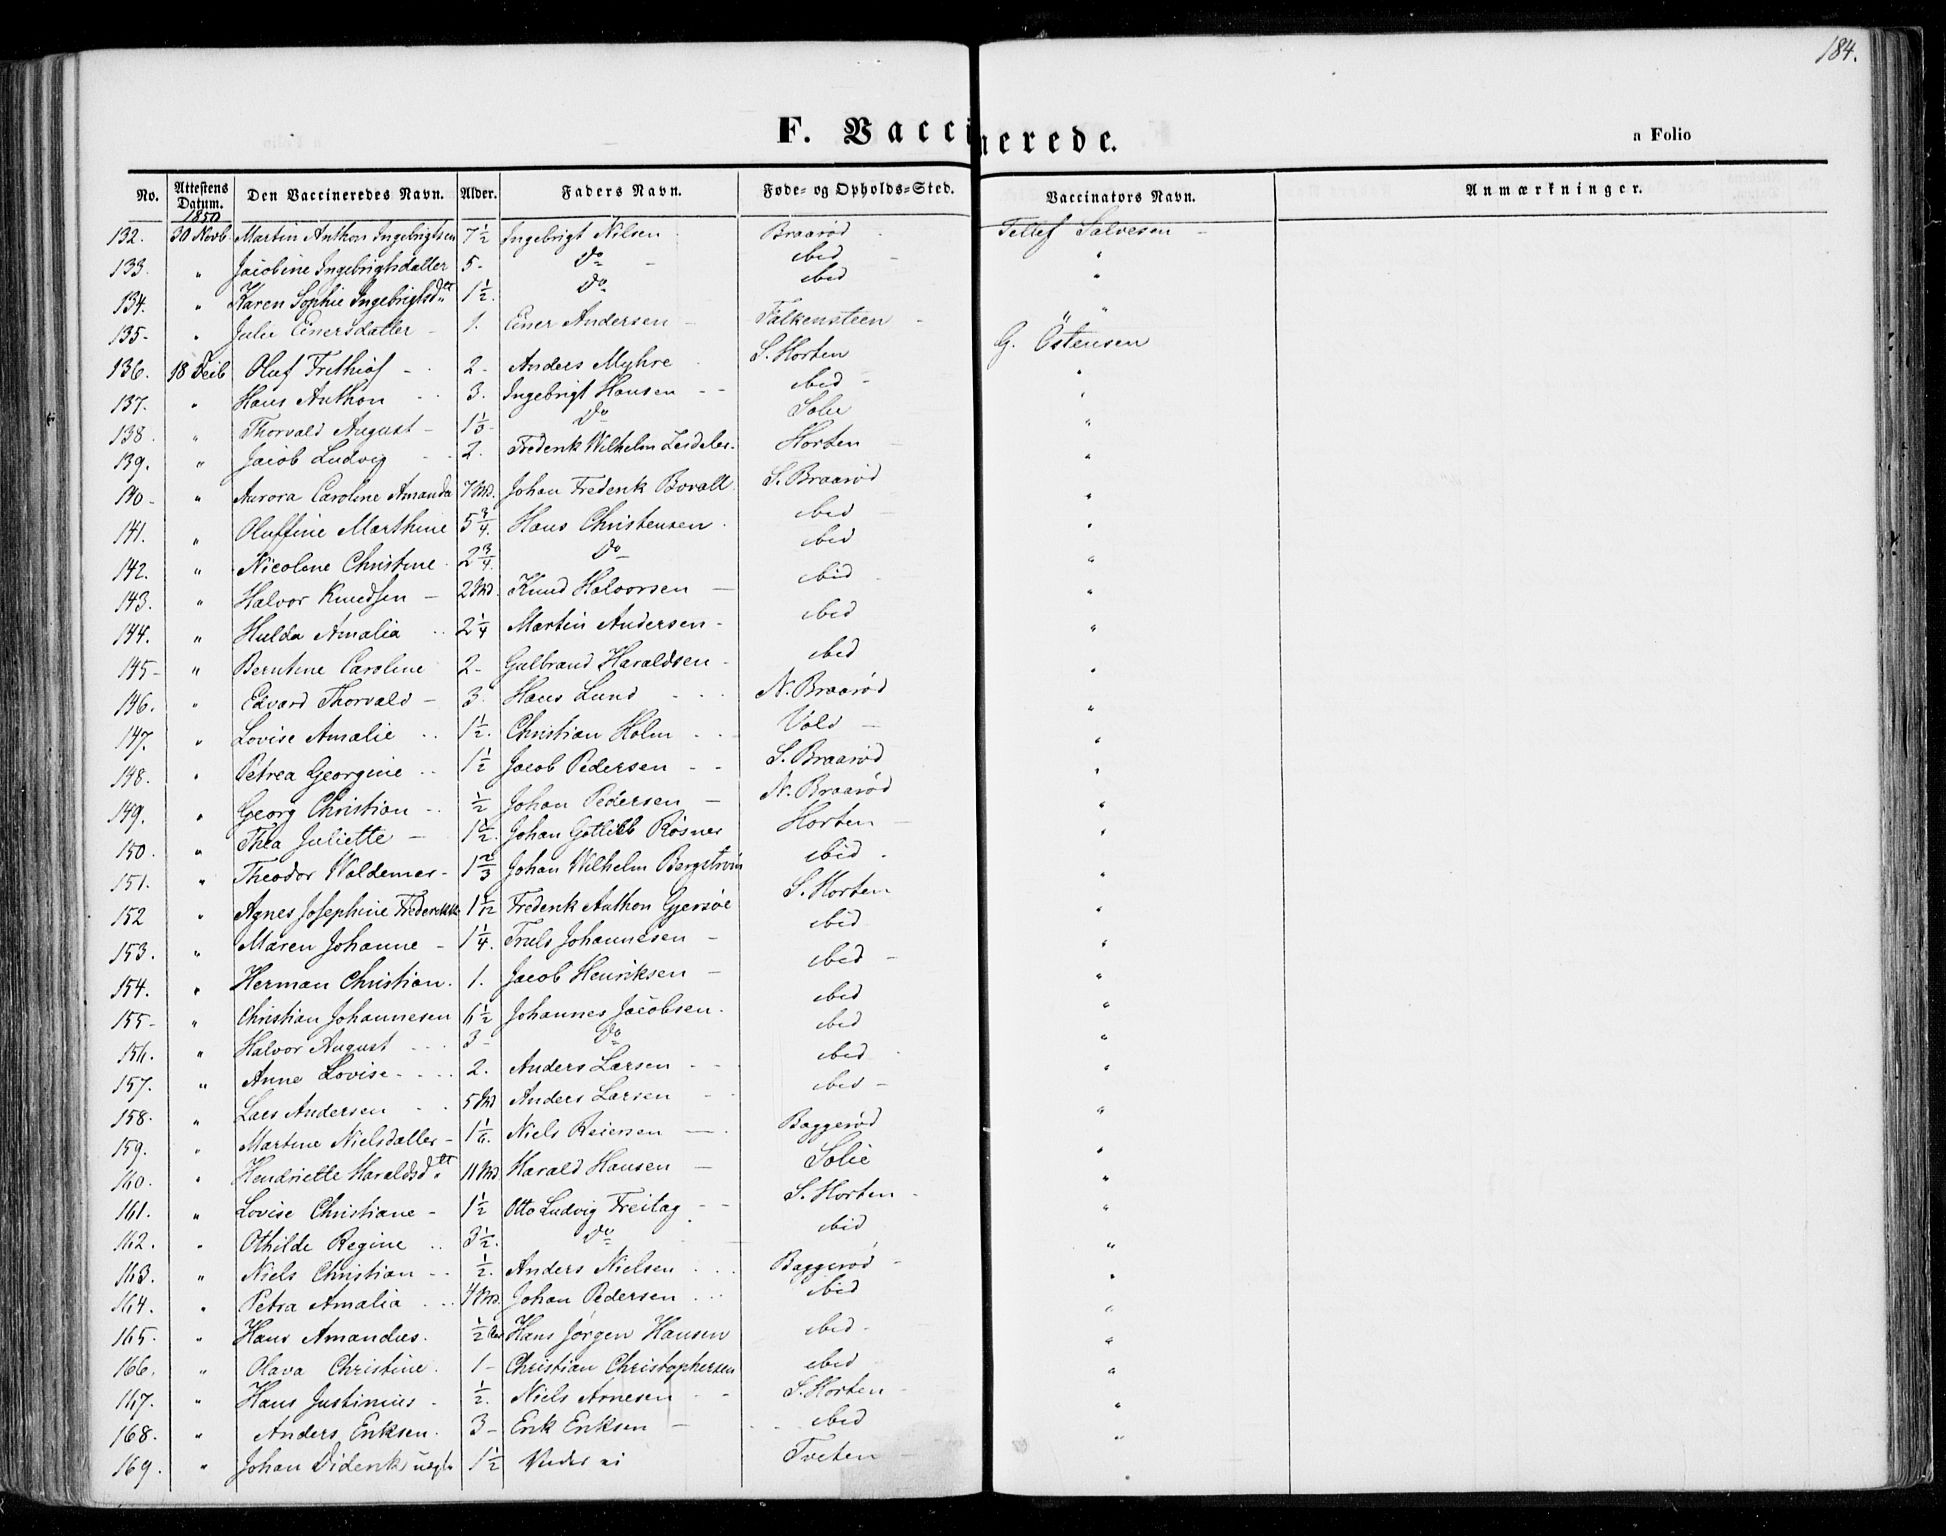 184.
F. Vaccinerede.
a Folio
No. Attestens Datum. Den Vaccineredes Navn. Alder. Faders Navn. Føde- og Opholds-Sted. Vaccinators Navn. Anmærkninger.
1850
132. 30 Novb. Martin Anthon Ingebrigtsen 7 1/2 Ingebrigt Nilsen Braarød Tellef Salvesen
133. " Jacobine Ingebrigtsdatter 5 - Do ibid "
134. " Karen Sophie Ingebrigtsdtt 1 1/2. Do ibid "
135- " Julie Einersdatter - 1. Einer Andersen - Falkensteen " "
136. 18 Decb Oluf Frethiof - 2 - Anders Myhre S. Horten G. Östensen
137. " Hans Anthon 3. Ingebrigt Hansen - - ibid - "
138. " Thorvald August - 1 1/3 - Do Solie "
139. " Jacob Ludvig 2. Frederik Wilhelm Horten "
140- " Aurora Caroline Amanda 7 Md. Johan Frederik Bovall S. Braarød "
141. " Oluffine Marthine 5 3/4. Hans Christensen ibid - "
142. " Nicoline Christine 2 3/4. Do ibid "
143. " Halvor Knudsen - 2 Md. Knud Halvorsen - ibid "
144. " Hulda Amalia 2 1/4 Martin Andersen - ibid "
145- " Berntine Caroline 2 - Gulbrand Haraldsen - ibid "
146. " Edvard Thorvald - 3. Hans Lund N. Braarød "
147. " Lovise Amalie 1 1/2. Christian Holm Vold - "
148. " Petrea Georgine 1 1/2 Jacob Pedersen - - S. Braarød "
149. " Georg Christian 1/2 Johan Pedersen - N. Braarød "
150. " Thea Juliette - 1 1/2. Johan Gotlieb Rösner Horten - "
151. " Theodor Waldemar - 1 2/3 Johan Wilhelm Bergström ibid "
152 " Agnes Josephine Frederikke 1 1/12 Frederik Anthon Gjersøe S. Horten "
153. " Maren Johanne - 1 1/4. Truls Johannesen - ibid "
154. " Herman Christian. 1. Jacob Henriksen - ibid - "
155- " Christian Johannesen 6 1/2 Johannes Jacobsen. ibid "
156. " Halvor August 3 - Do ibid "
157. " Anne Lovise 2. Anders Larsen ibid "
158. " Lars Andersen 5 Md Anders Larsen ibid - "
159. " Martine Nielsdatter - 1 1/6. Niels Reiersen - Baggerød "
160. " Hendriette Haraldsdtt 11 Md Harald Hansen - Solie "
161. " Lovise Christiane - 1 1/2 Otto Ludvig Freitag - - S. Horten - "
162. " Othilde Regine 3 1/2. Do ibid "
163. " Niels Christian 1/2. Anders Nielsen Baggerød "
164. " Petra Amalia 4 Md. Johan Pedersen ibid "
165. " Hans Amandus. 1/2 Hans Jørgen Hansen ibid - "
166. " Olava Christine. 1 - Christian Christophersen ibid "
167. " Hans Justinius 1/2. Niels Arnesen S. Horten - "
168. " Anders Eriksen. 3 - Erik Eriksen - ibid "
169. " Johan Diderik uægte 1 1/2 Tveten "